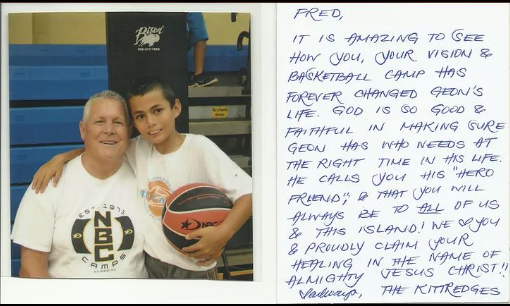 Bison
EST. 1971
NBC
CAMPS
NBC
FRED,
IT IS AMAZING TO SEE
HOW YOU, YOUR VISION &
BASKETBALL CAMP HAS
FOREVER CHANGED GEON'S
LIFE. GOD IS SO GOOD &
FAITHFUL IN MAKING SURE
GEON HAS WHO NEEDS AT
THE RIGHT TIME IN HIS LIFE.
HE CALLS YOU HIS "HERO
FRIEND", & THAT YOU WILL
ALWAYS BE TO ALL OF US
& THIS ISLAND! WE ♡ YOU
& PROUDLY CLAIM YOUR
HEALING IN THE NAME OF
ALMIGHTY JESUS CHRIST!!
THE KITTREDGES